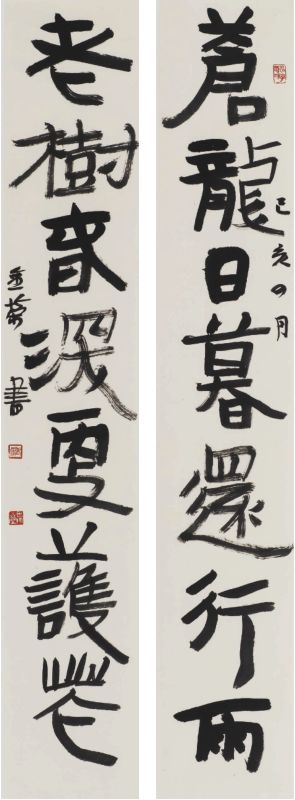 蒼龍日暮還行雨
己亥四月
老樹春深更護花
書